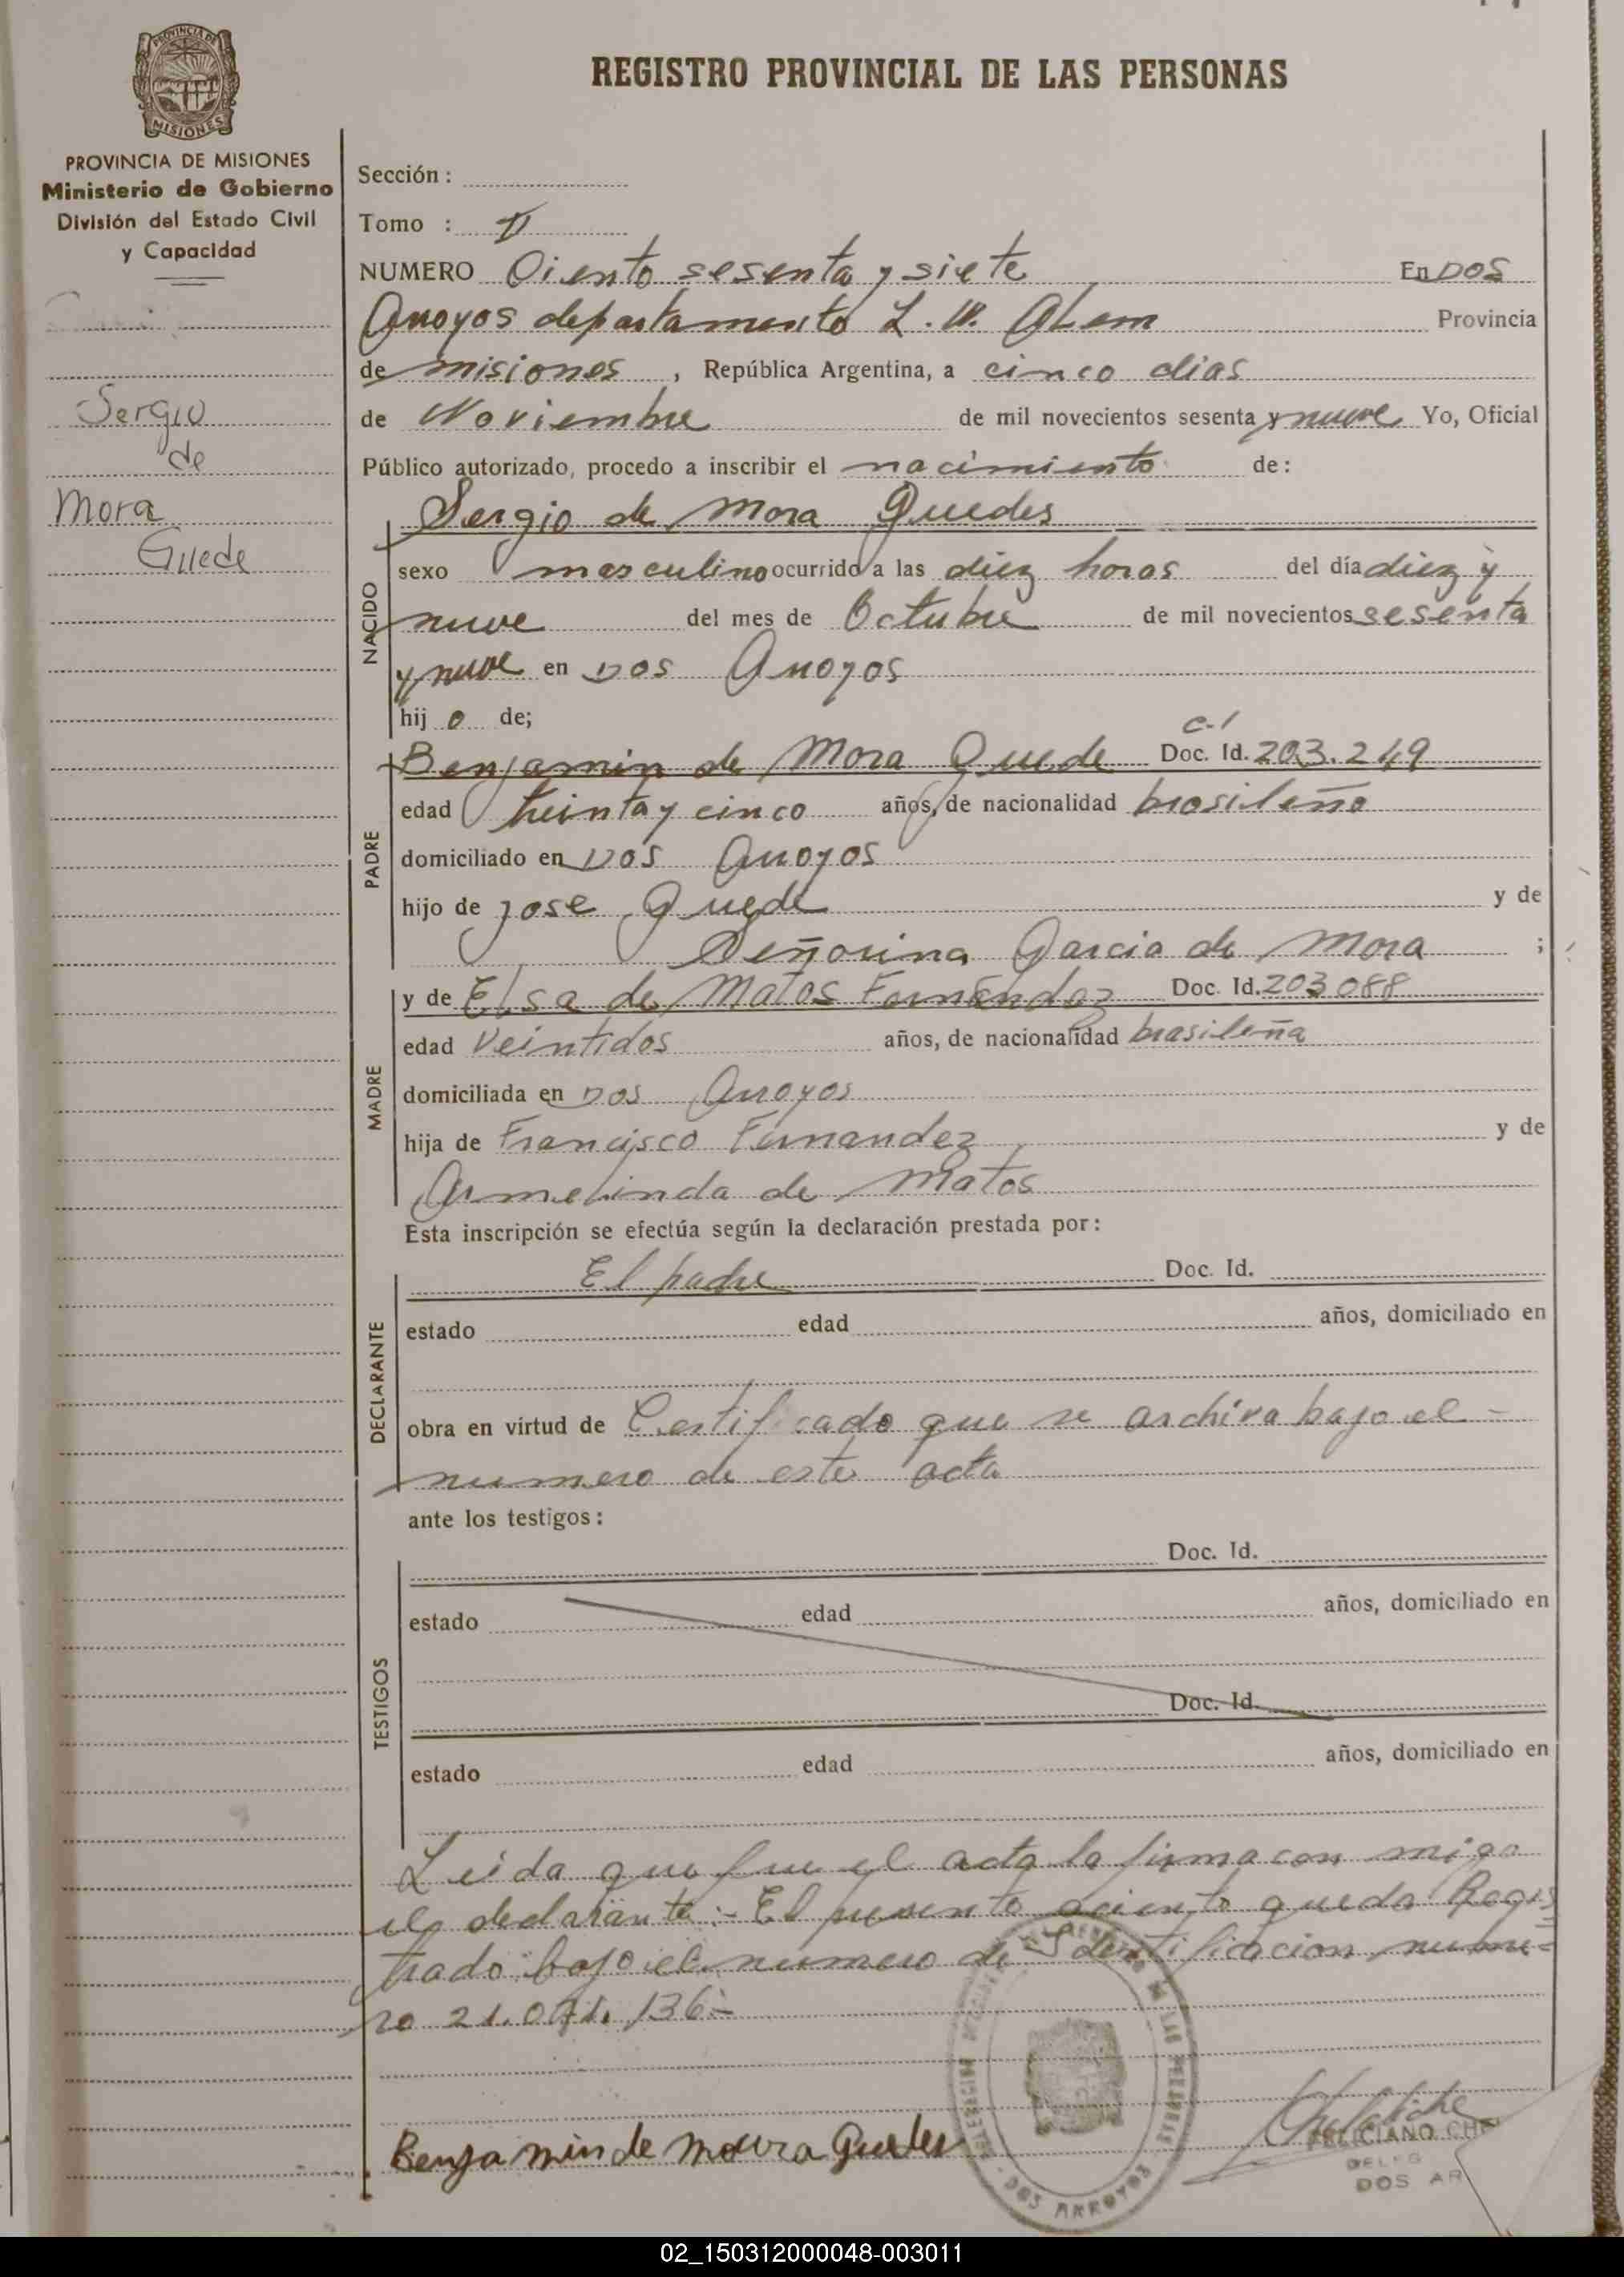 REGISTRO PROVINCIAL DE LAS PERSONAS
PROVINCIA DE MISIONES
PROVINCIA DE MISIONES
Ministerio de Gobierno
División del Estado Civil
y Capacidad
Sergio
de
Mora
Guede
Sección :
Tomo :
NUMERO Ciento sesenta y siete En DOS
Arroyos departamento L. N. Alem Provincia
de misiones , República Argentina, a cinco dias
de Noviembre de mil novecientos sesenta y nueve Yo, Oficial
Público autorizado, procedo a inscribir el nacimiento de:
Sergio de Mora Guedes
NACIDO
sexo masculino ocurrido a las diez horas del día diez y
nueve del mes de Octubre de mil novecientos sesenta
y nueve en Dos Arroyos
hij o de;
PADRE
c.i
Benjamin de Mora Guede Doc. Id. 203.249
edad treinta y cinco años, de nacionalidad brasileño
domiciliado en Dos Arroyos
hijo de Jose Guede y de
Señorina Garcia de Mora ;
MADRE
y de Elsa de Matos Fernández Doc. Id. 203088
edad Veintidos años, de nacionalidad brasileña
domiciliada en Dos Arroyos
hija de Francisco Fernandez y de
Armelinda de Matos
Esta inscripción se efectúa según la declaración prestada por:
DECLARANTE
El padre Doc. Id.
estado edad años, domiciliado en
obra en virtud de Certificado que se archiva bajo el -
numero de este acta
ante los testigos:
TESTIGOS
Doc. Id.
estado edad años, domiciliado en
Doc. Id.
estado edad años, domiciliado en
Leida que fue el acta la firma con migo
el declarante :- El presente aciento queda Regis
trado bajo el numero de Identificacion nume-
ro 136.-
Benjamin de Moura Guedes
DOS ARROYOS
FELICIANO CHE
DELEG
DOS AR
02_150312000048-003011